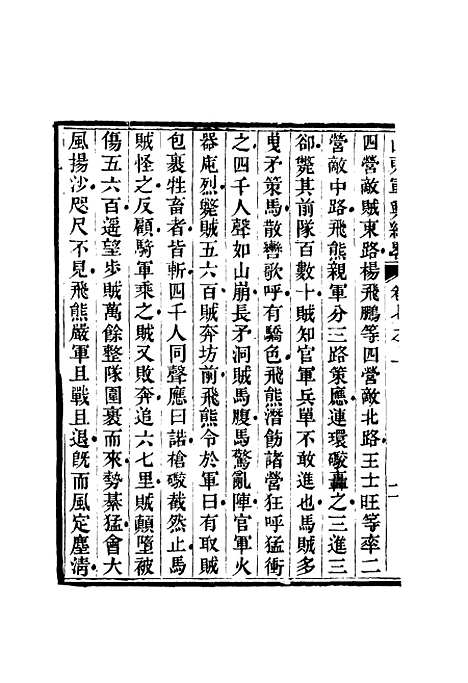 山東軍興紀畧 卷七之一
四營敵賊東路楊飛鵬等四營敵北路王士旺等率二
營敵中路飛熊親軍分三路策應連環礮轟之三進三
卻斃其前隊百數十賊知官軍兵單不敢進也馬賊多
曳矛策馬散轡歌呼有驕色飛熊潛飭諸營狂呼猛衝
之四千人聲如山崩長矛洞賊馬腹馬驚亂陣官軍火
器庵烈斃賊五六百賊奔坊前飛熊令於軍曰有取賊
包裹牲畜者皆斬四千人同聲應曰諾槍礮截然止馬
賊怪之反顧騎軍乘之賊又敗奔追六七里賊顛墮被
傷五六百遥望步賊萬餘整隊圍裹而來勢綦猛會大
風揚沙咫尺不見飛熊嚴軍且戰且退旣而風定塵清